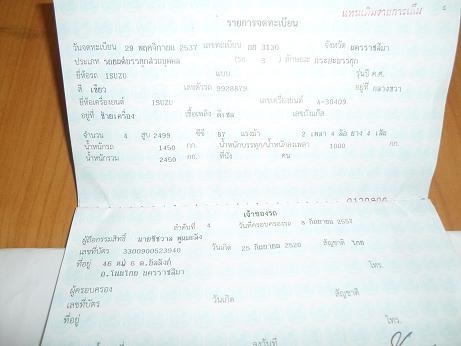 แทนเดิมรายการเต็ม
รายการจดทะเบียน
วันจดทะเบียน 29 พฤศจิกายน 2537 เลขทะเบียน 3130 จังหวัด นครราชสีมา
ประเภท รถยนต์บรรทุกส่วนบุคคล (รย 3 ) ลักษณะ กระบะบรรทุก
ยี่ห้อรถ ISUZU แบบ รุ่นปี ค.ศ.
สี เขียว เลขตัวรถ 9928879 อยู่ที่ กลางขวา
ยี่ห้อเครื่องยนต์ ISUZU เลขเครื่องยนต์ 4-30409
อยู่ที่ ซ้ายเครื่อง เชื้อเพลิง ดีเซล เลขถังแก๊ส
จำนวน 4 สูบ 2499 ซีซี 87 แรงม้า 2 เพลา 4 ล้อ ยาง 4 เส้น
น้ำหนักรถ 1450 กก. น้ำหนักบรรทุก/น้ำหนักลงเพลา 1000 กก.
น้ำหนักรวม 2450 กก. ที่นั่ง คน
เจ้าของรถ
ลำดับที่ 4 วันที่ครอบครองรถ 8 กันยายน 2557
ผู้ถือกรรมสิทธิ์ นายชัชวาล
เลขที่บัตร 3300900523940 วันเกิด 25 กันยายน 2520 สัญชาติ ไทย
ที่อยู่ 46 หมู่ 6 โทร.
นครราชสีมา
ผู้ครอบครอง
เลขที่บัตร วันเกิด สัญชาติ
ที่อยู่ โทร.